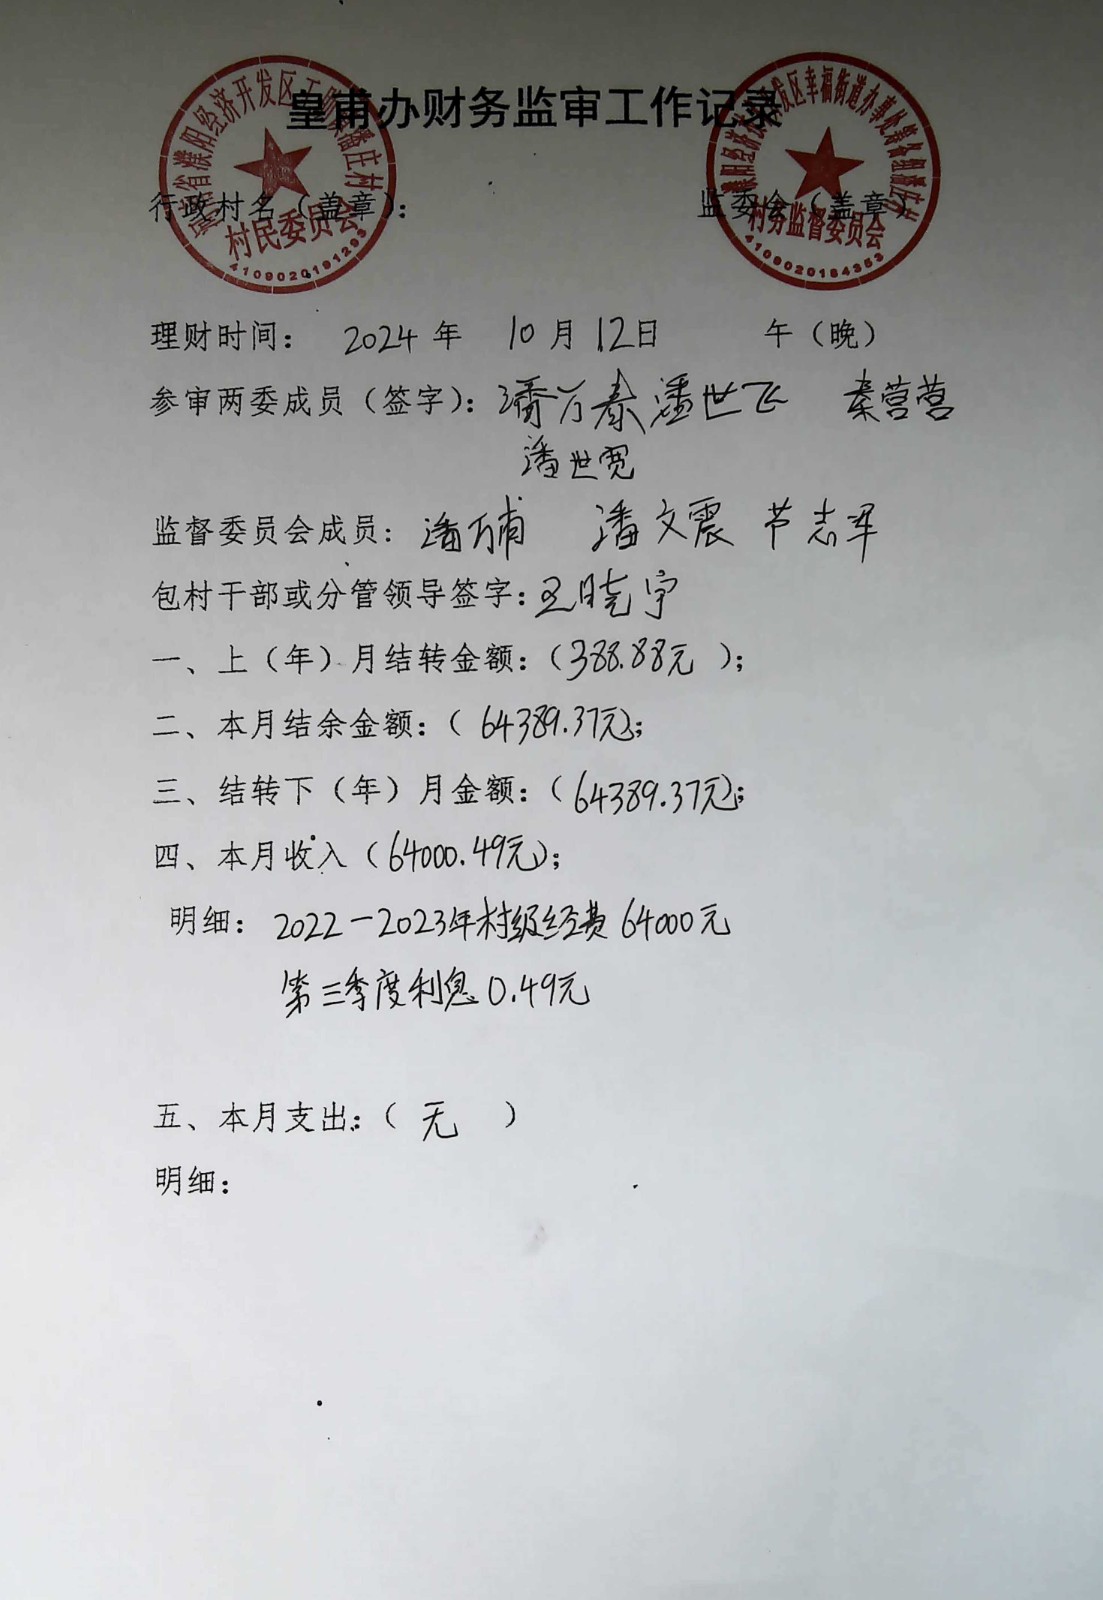 皇甫办财务监审工作记录
行政村名（盖章）：
监委会（盖章）
濮阳经济开发区
潘庄村
村民委员会
4109020191293
发区幸福街道办事处
村务监督委员会
4109020184353
理财时间： 2024 年 10 月 12日 午（晚）
参审两委成员（签字）：潘万泰 潘世飞 秦营营
潘世宽
监督委员会成员：潘万甫 潘文震 节志军
包村干部或分管领导签字：王晓宇
一、上（年）月结转金额：（388.88元 ）；
二、本月结余金额：（ 64389.37元）；
三、结转下（年）月金额：（64389.37元）；
四、本月收入（64000.49元）；
明细： 2022－2023年村级经费 64000元
第三季度利息 0.49元
五、本月支出：（ 无 ）
明细：